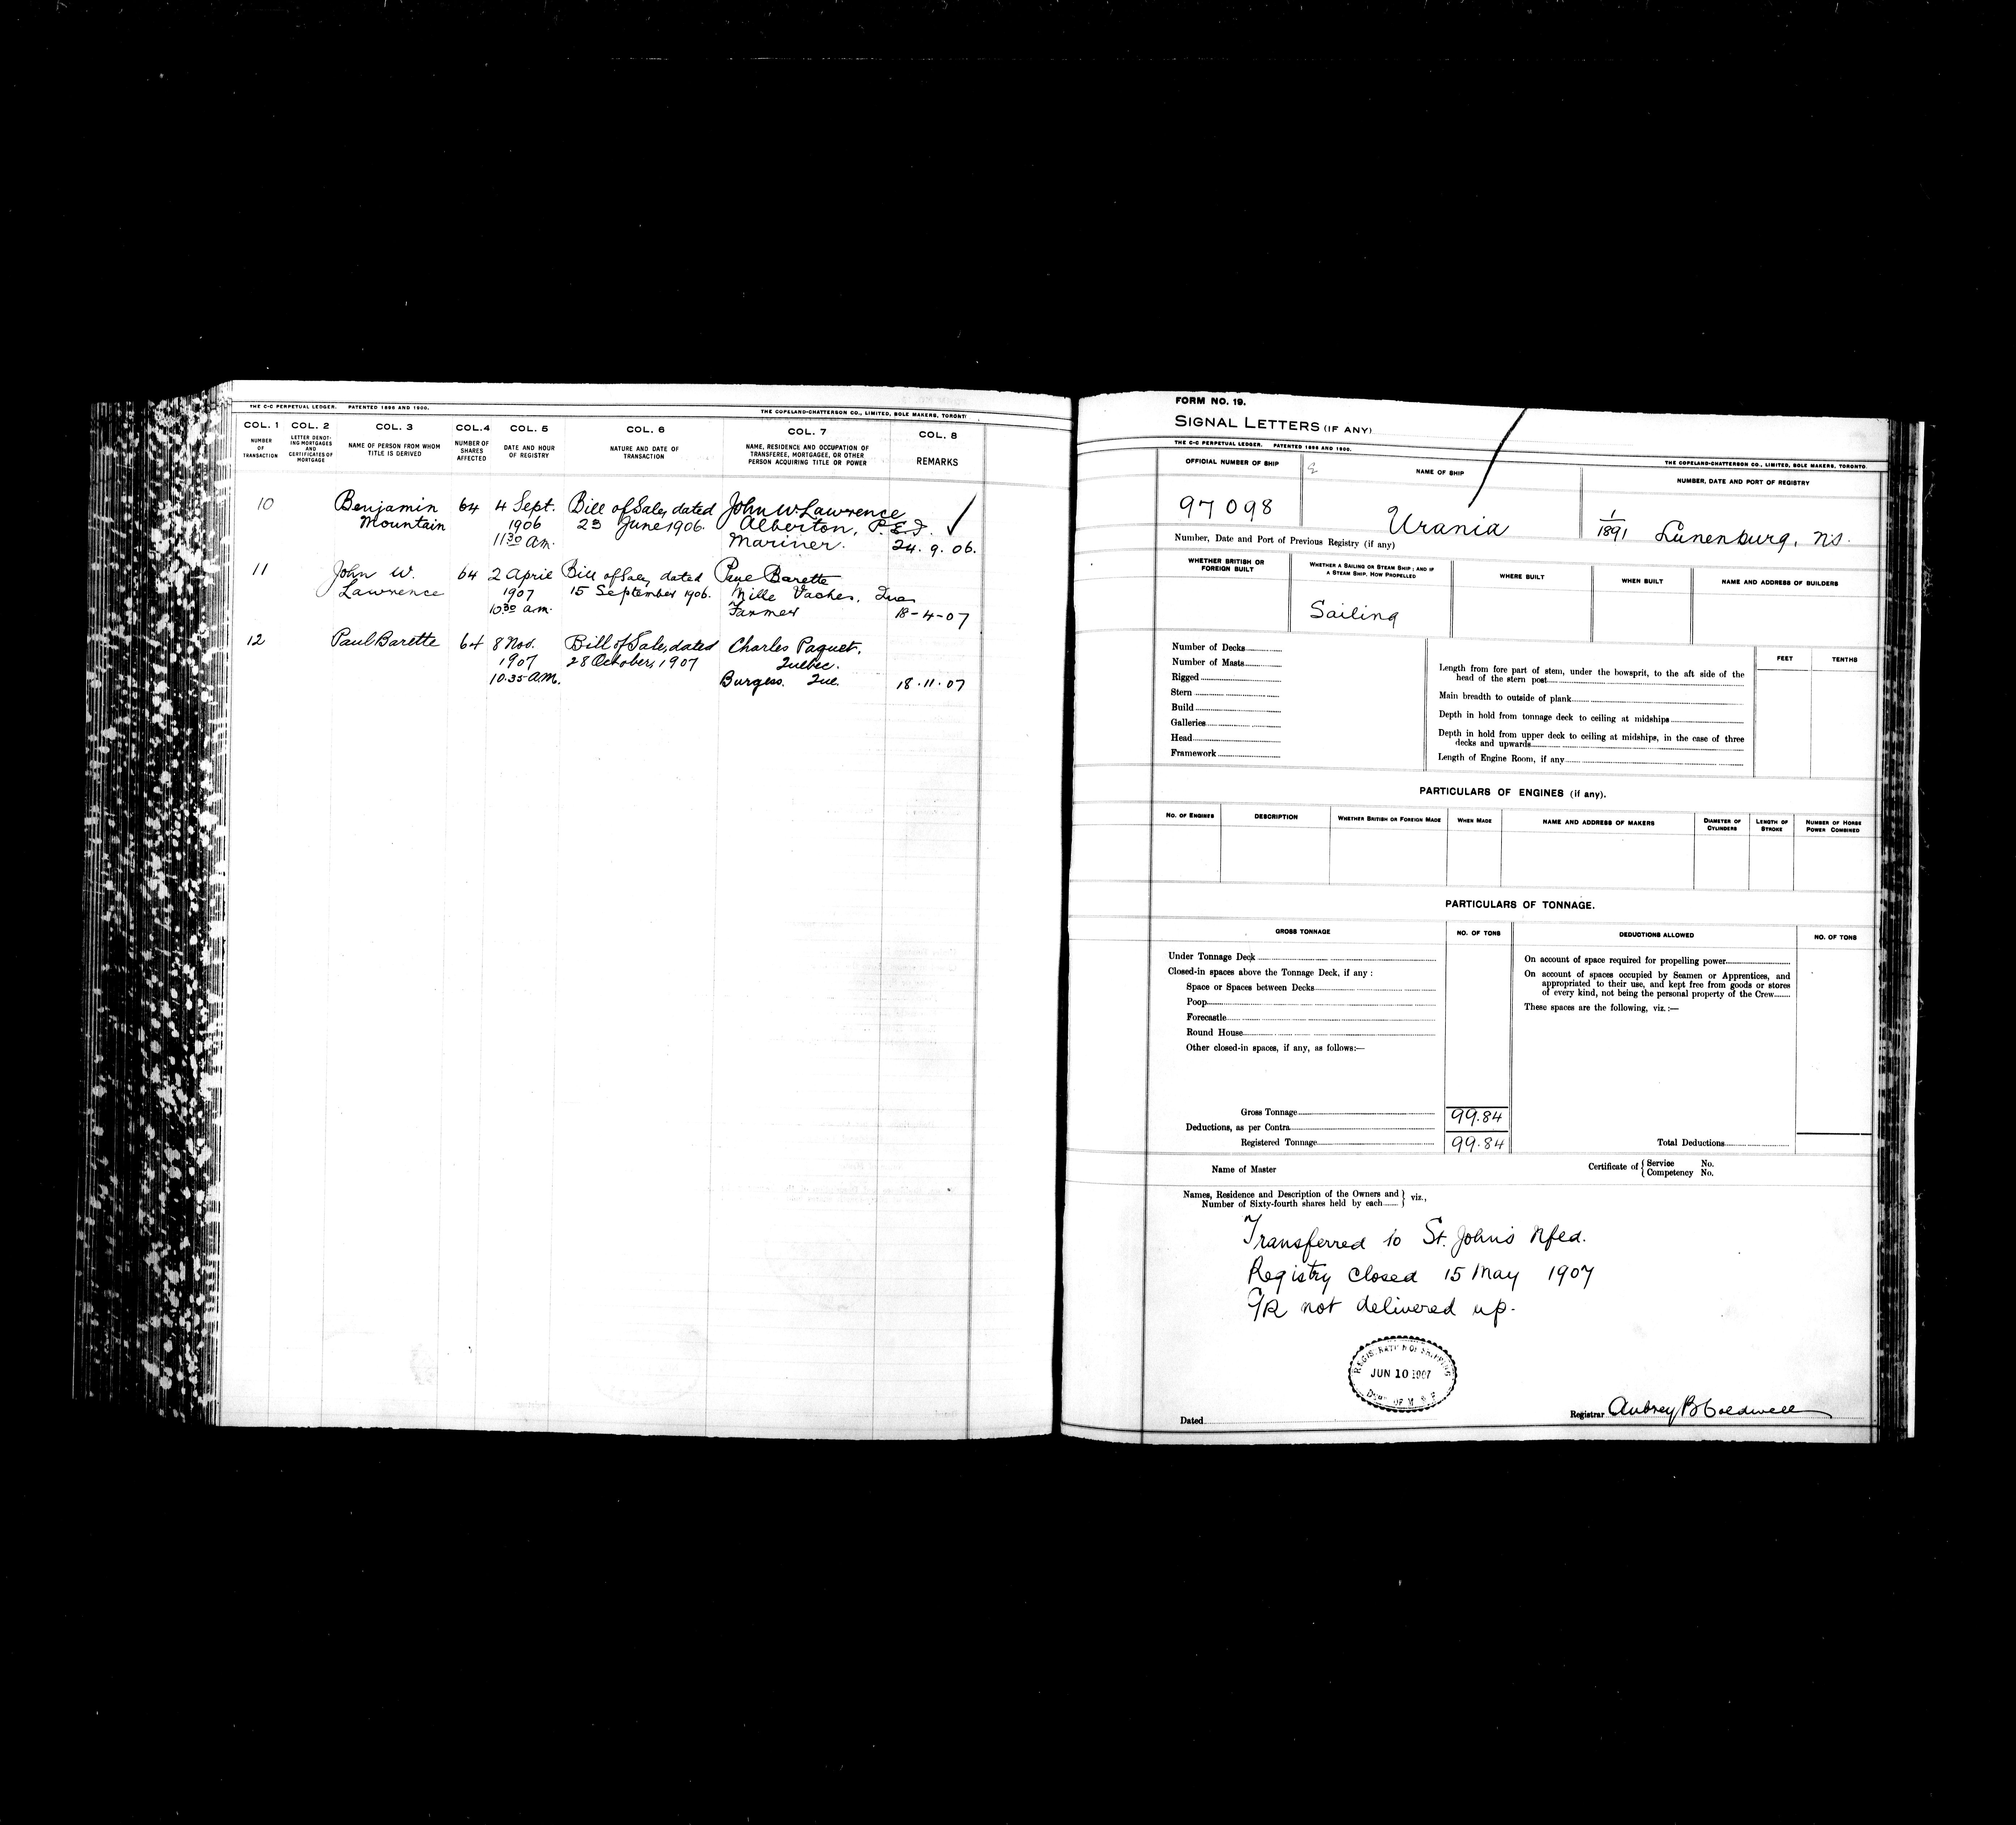 THE C-C PERPETUAL LEDGER. PATENTED 1896 AND 1900. THE COPELAND-CHATTERSON CO., LIMITED, SOLE MAKERS, TORONTO
COL. 1 COL. 2 COL. 3 COL. 4 COL. 5 COL. 6 COL. 7 COL. 8
NUMBER OF TRANSACTION
LETTER DENOTING MORTGAGES AND CERTIFICATES OF MORTGAGE
NAME OF PERSON FROM WHOM TITLE IS DERIVED
NUMBER OF SHARES AFFECTED
DATE AND HOUR OF REGISTRY
NATURE AND DATE OF TRANSACTION
NAME, RESIDENCE AND OCCUPATION OF TRANSFEREE, MORTGAGEE, OR OTHER PERSON ACQUIRING TITLE OR POWER
REMARKS
10 Benjamin 64 4 Sept. Bill of Sale, dated John W Lawrence
Mountain 1906 23 June 1906. Alberton, P.E.I.
11 30 am. Mariner. 24.9.06.
11 John W. 64 2 April Bill of Sale, dated Barette
Lawrence 1907 15 September 1906. Mille Vaches, Que
10 30 am. Farmer 18-4-07
12 Paul Barette 64 8 Nov. Bill of Sale, dated Charles Paquet,
1907 28 October, 1907 Quebec.
10.35 A.M. Burgess. Que. 18.11.07
FORM NO. 19.
SIGNAL LETTERS (IF ANY)
THE C-C PERPETUAL LEDGER. PATENTED 1896 AND 1900. THE COPELAND-CHATTERSON CO., LIMITED, SOLE MAKERS, TORONTO.
OFFICIAL NUMBER OF SHIP NAME OF SHIP NUMBER, DATE AND PORT OF REGISTRY
97098 Urania 1/1891 Lunenburg, NS.
Number, Date and Port of Previous Registry (if any)
WHETHER BRITISH OR FOREIGN BUILT
WHETHER A SAILING OR STEAM SHIP; AND IF A STEAM SHIP, HOW PROPELLED
WHERE BUILT WHEN BUILT NAME AND ADDRESS OF BUILDERS
Sailing
Number of Decks
Number of Masts
Rigged
Stern
Build
Galleries
Head
Framework
FEET TENTHS
Length from fore part of stem, under the bowsprit, to the aft side of the
head of the stern post
Main breadth to outside of plank
Depth in hold from tonnage deck to ceiling at midships
Depth in hold from upper deck to ceiling at midships, in the case of three
decks and upwards
Length of Engine Room, if any
PARTICULARS OF ENGINES (if any).
NO. OF ENGINES DESCRIPTION WHETHER BRITISH OR FOREIGN MADE WHEN MADE NAME AND ADDRESS OF MAKERS DIAMETER OF CYLINDERS LENGTH OF STROKE NUMBER OF HORSE POWER COMBINED
PARTICULARS OF TONNAGE.
GROSS TONNAGE NO. OF TONS DEDUCTIONS ALLOWED NO. OF TONS
Under Tonnage Deck
Closed-in spaces above the Tonnage Deck, if any:
Space or Spaces between Decks
Poop
Forecastle
Round House
Other closed-in spaces, if any, as follows:—
On account of space required for propelling power
On account of spaces occupied by Seamen or Apprentices, and
appropriated to their use, and kept free from goods or stores
of every kind, not being the personal property of the Crew
These spaces are the following, viz.:—
Gross Tonnage 99.84
Deductions, as per Contra
Registered Tonnage 99.84 Total Deductions
Name of Master Certificate of { Service No.
Competency No.
Names, Residence and Description of the Owners and
Number of Sixty-fourth shares held by each } viz.,
Transferred to St. John's Nfed.
Registry closed 15 May 1907
not delivered up.
JUN 10 1907
Dated Registrar Aubrey B Coldwell